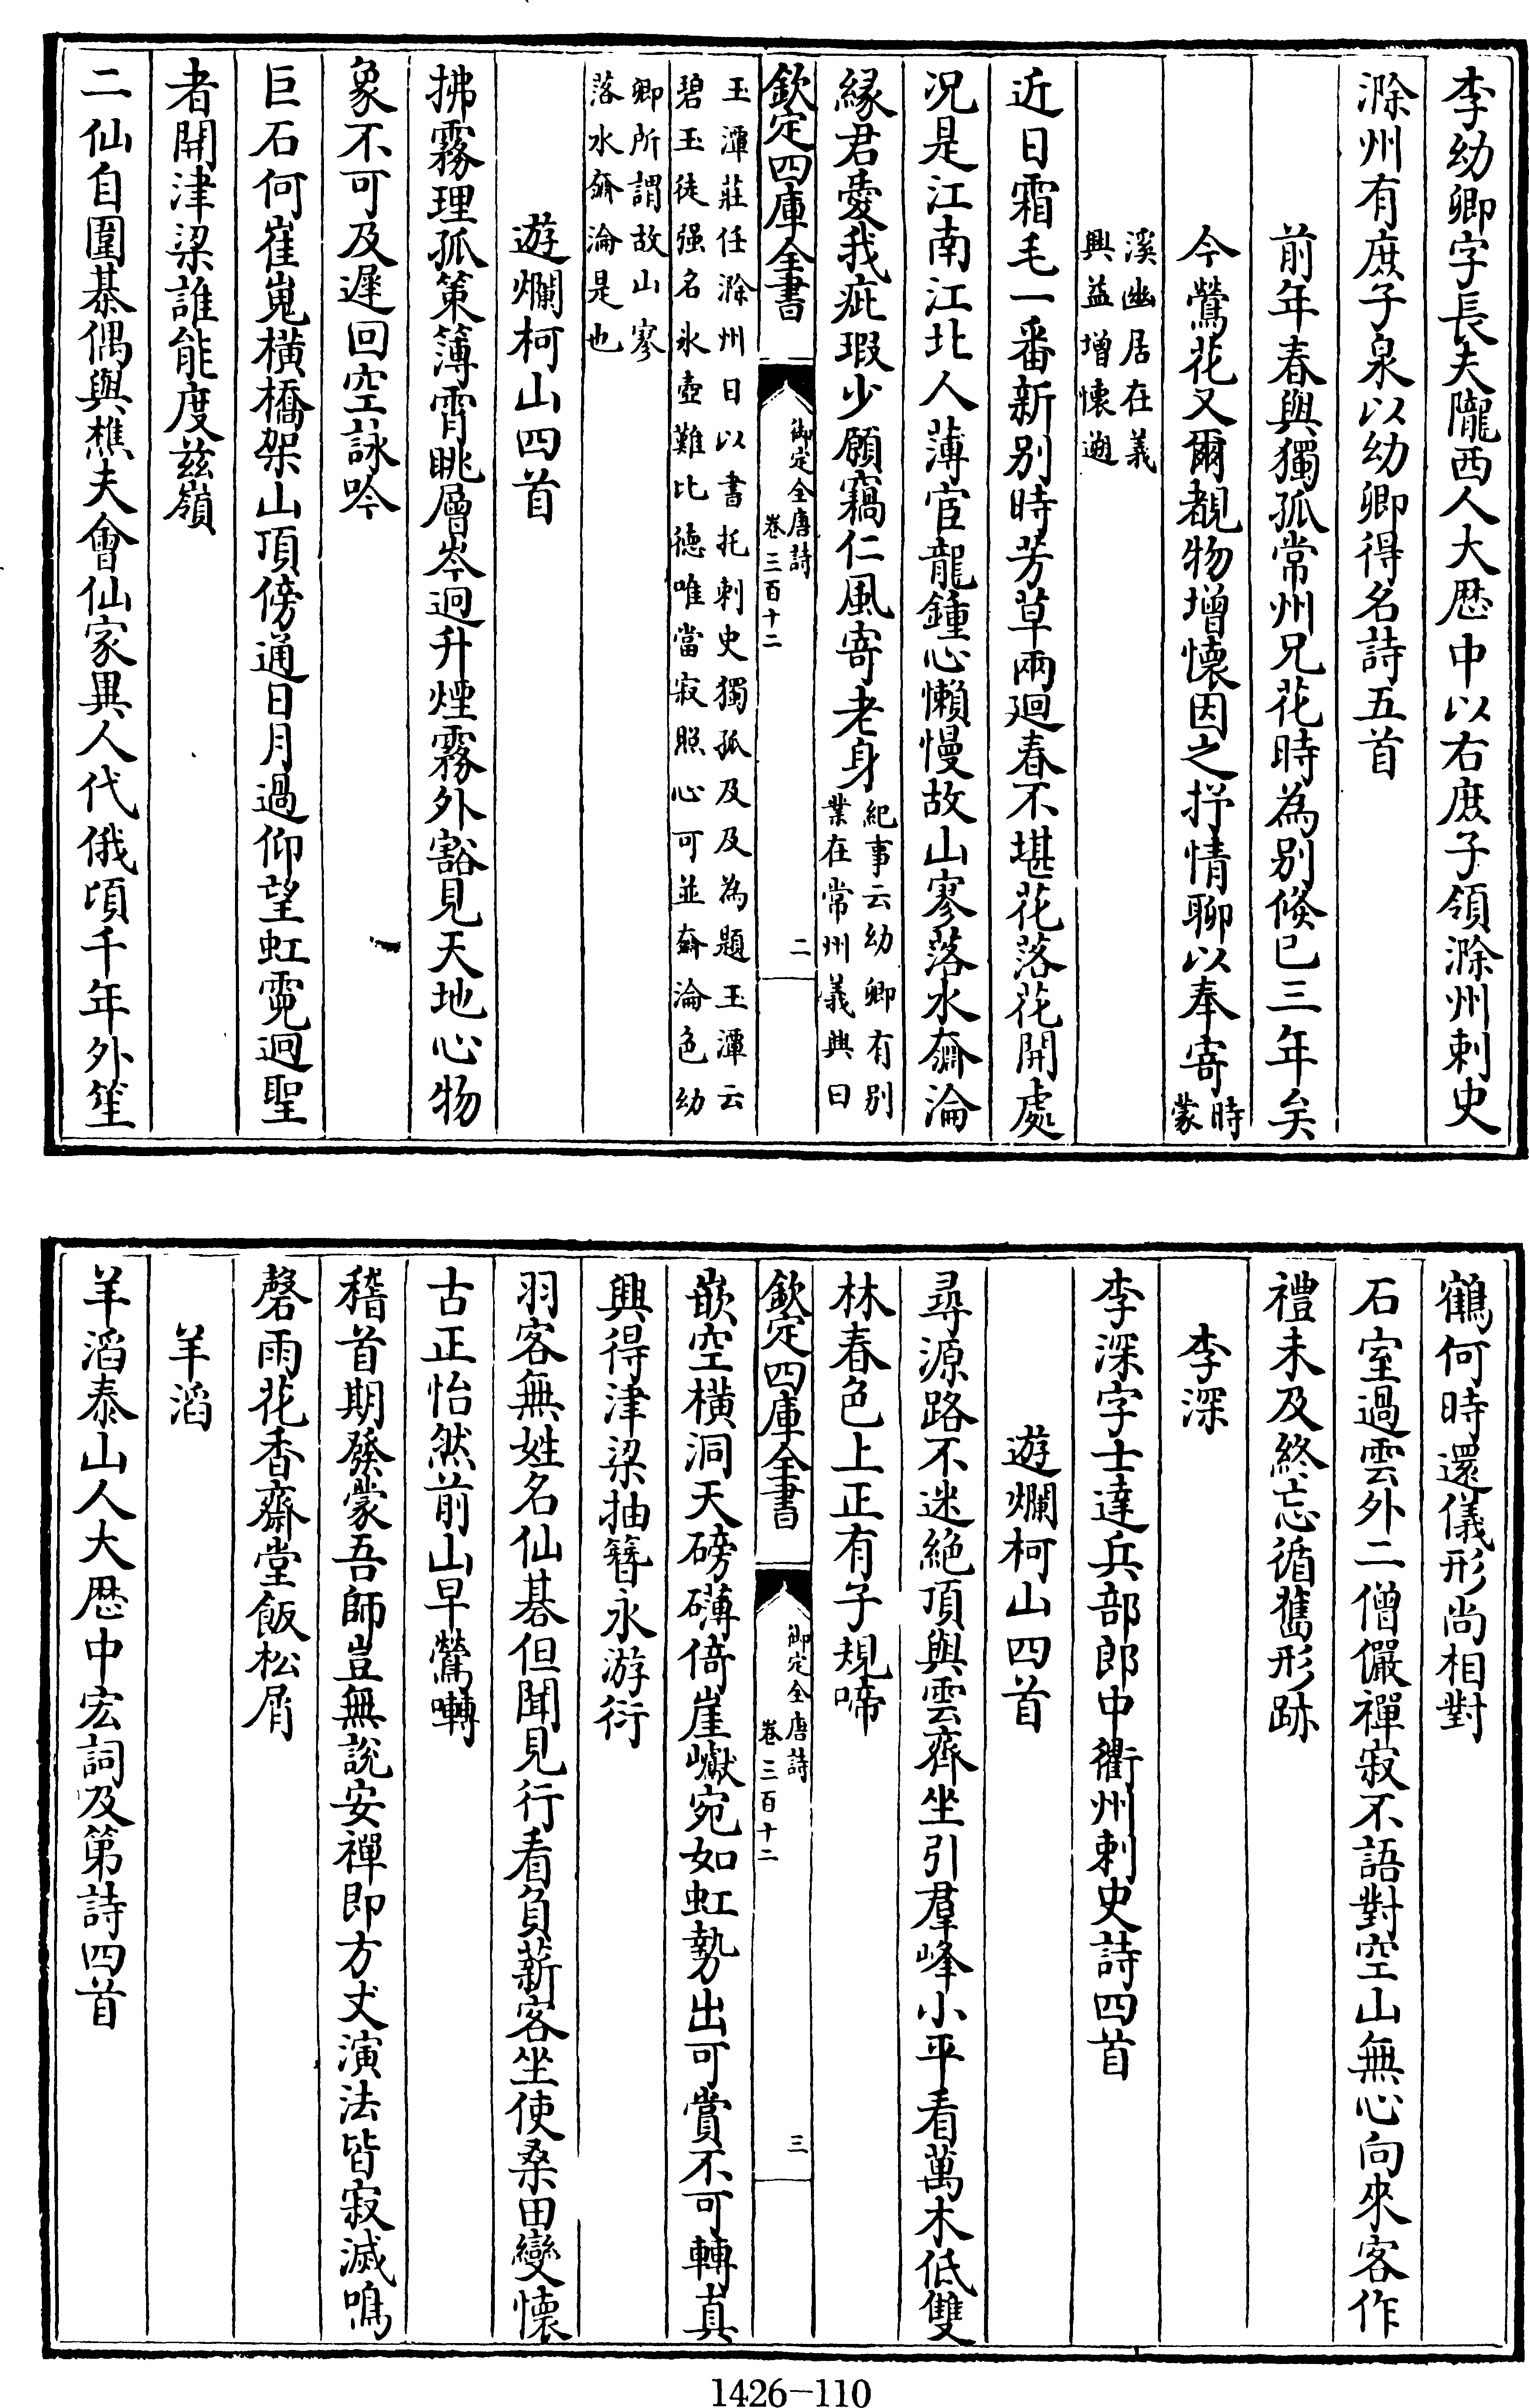 李幼卿字長夫隴西人大厯中以右庶子領滁州刺史
滁州有庶子泉以幼卿得名詩五首
前年春與獨孤常州兄花時為别倐已三年矣
今鶯花又爾覩物增懷因之抒情聊以奉寄
時蒙
溪幽居在義
興益增懷遡
近日霜毛一番新别時芳草兩廻春不堪花落花開處
况是江南江北人薄宦龍鍾心懶慢故山寥落水奫淪
緣君愛我疵瑕少願竊仁風寄老身
紀事云幼卿有别
業在常州義興曰
欽定四庫全書
御定全唐詩
卷三百十二
二
玉潭莊任滁州日以書托刺史獨孤及及為題玉潭云
碧玉徒强名氷壺難比徳唯當寂照心可並奫淪色幼
卿所謂故山寥
落水奫淪是也
遊爛柯山四首
拂霧理孤策薄霄眺層岑迥升煙霧外豁見天地心物
象不可及遲回空詠吟
巨石何崔嵬横橋架山頂傍通日月過仰望虹霓迥聖
者開津梁誰能度兹嶺
二仙自圍棊偶與樵夫會仙家異人代俄頃千年外笙
鶴何時還儀形尚相對
石室過雲外二僧儼禪寂不語對空山無心向來客作
禮未及終忘循舊形跡
李深
李深字士達兵部郎中衢州刺史詩四首
遊爛柯山四首
尋源路不迷絶頂與雲齊坐引羣峰小平看萬木低雙
林春色上正有子規啼
欽定四庫全書
御定全唐詩
卷三百十二
三
嵌空横洞天磅礴倚崖巘宛如虹勢出可賞不可轉真
興得津梁抽簪永游衍
羽客無姓名仙碁但聞見行看負薪客坐使桑田變懷
古正怡然前山早鶯囀
稽首期發蒙吾師豈無說安禪即方丈演法皆寂滅鳴
磬雨花香齋堂飯松屑
羊滔
羊滔泰山人大厯中宏詞及第詩四首
1426-110